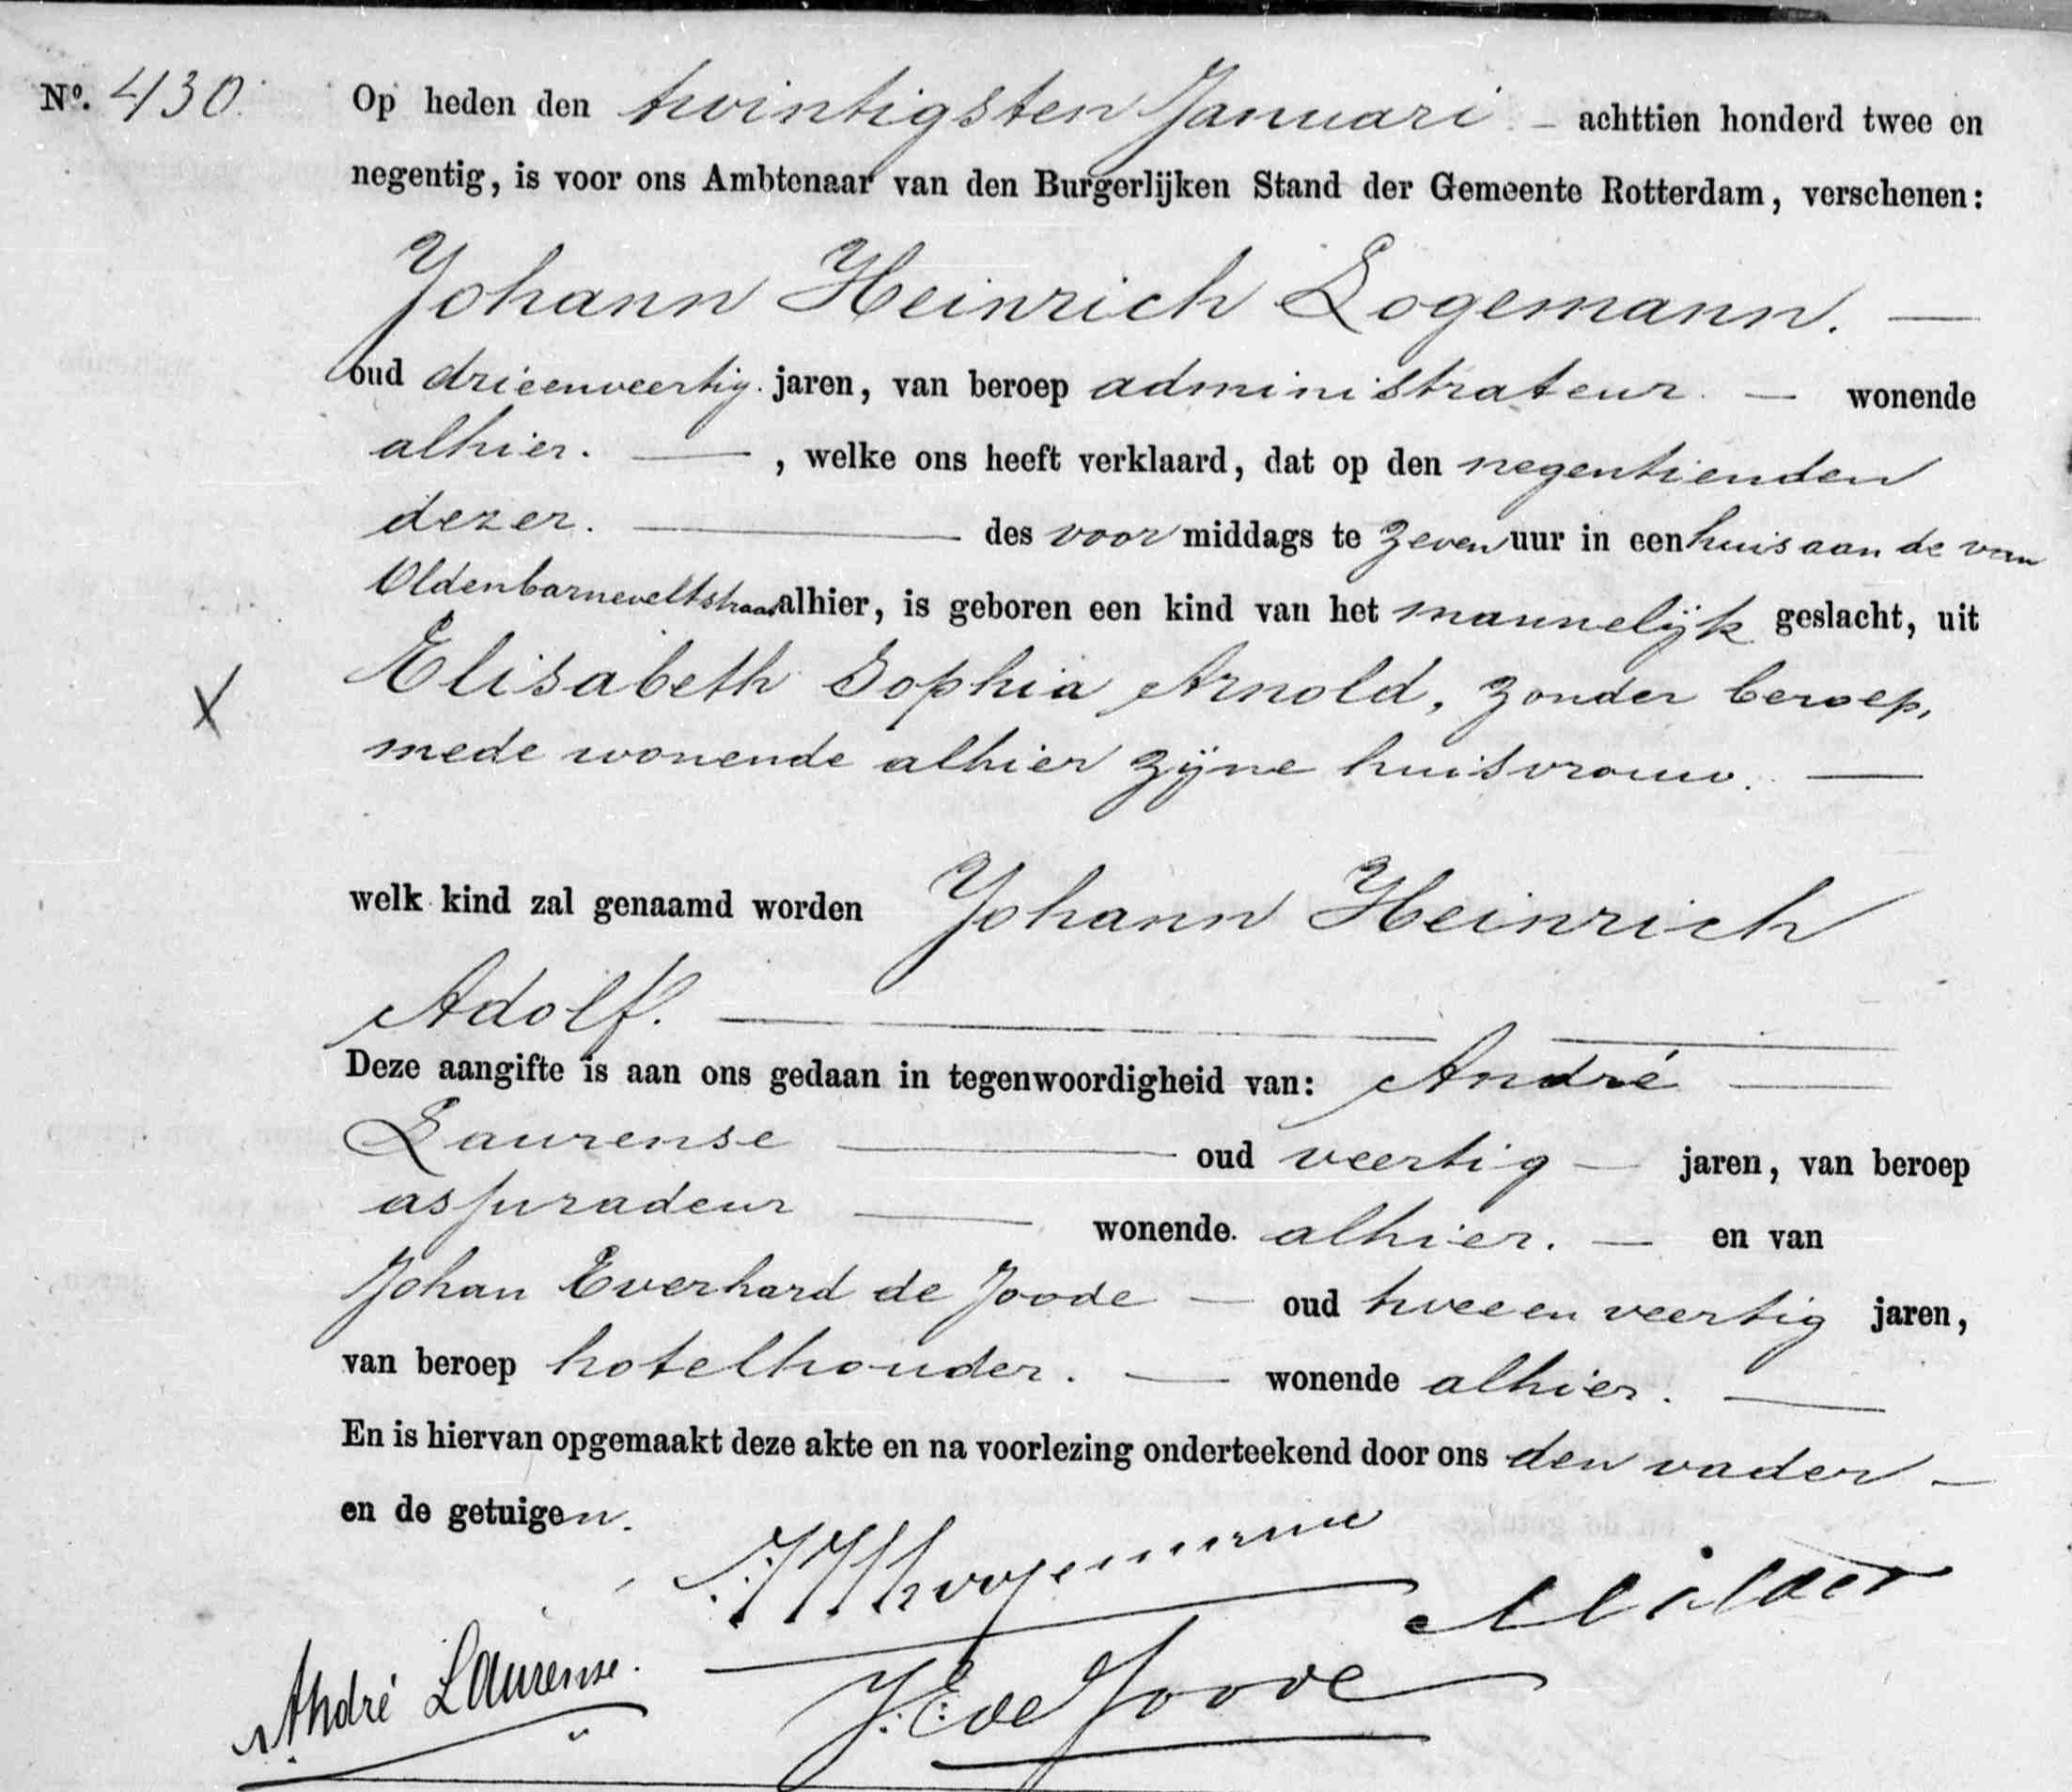 No. 430. Op heden den twintigsten Januari – achttien honderd twee en
negentig, is voor ons Ambtenaar van den Burgerlijken Stand der Gemeente Rotterdam, verschenen:
Johann Heinrich Logemann. —
oud drieenveertig. jaren, van beroep administrateur. — wonende
alhier. — , welke ons heeft verklaard, dat op den negentienden
dezer. — des voormiddags te zeven uur in een huis aan de van
Oldenbarneveltstraat alhier, is geboren een kind van het mannelijk geslacht, uit
Elisabeth Sophia Arnold, zonder beroep,
mede wonende alhier zijne huisvrouw. —
X
welk kind zal genaamd worden Johann Heinrich
Adolf. —
Deze aangifte is aan ons gedaan in tegenwoordigheid van: André —
Laurense — oud veertig — jaren, van beroep
assuradeur — wonende. alhier. — en van
Johan Everhard de Joode — oud tweeen veertig jaren,
van beroep hotelhouder. — wonende alhier. —
En is hiervan opgemaakt deze akte en na voorlezing onderteekend door ons den vader –
en de getuigen.
J H Logemann
André Laurense.
J. E. de Joode